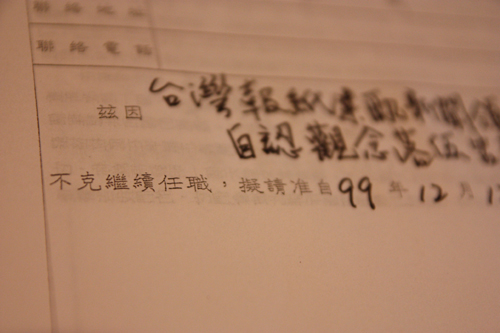 聯絡地址
聯絡電話
茲因 台灣報紙業配新聞
自認觀念落伍
不克繼續任職，擬請准自99年12月1